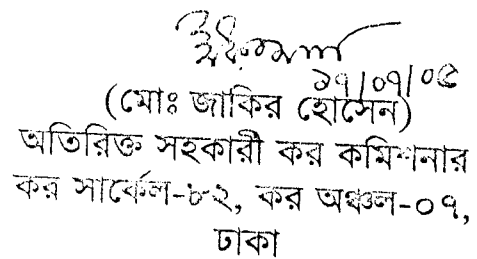 ১৭/০৭/০৫
(মোঃ জাকির হোসেন)
অতিরিক্ত সহকারী কর কমিশনার
কর সার্কেল-৮২, কর অঞ্চল-০৭,
ঢাকা